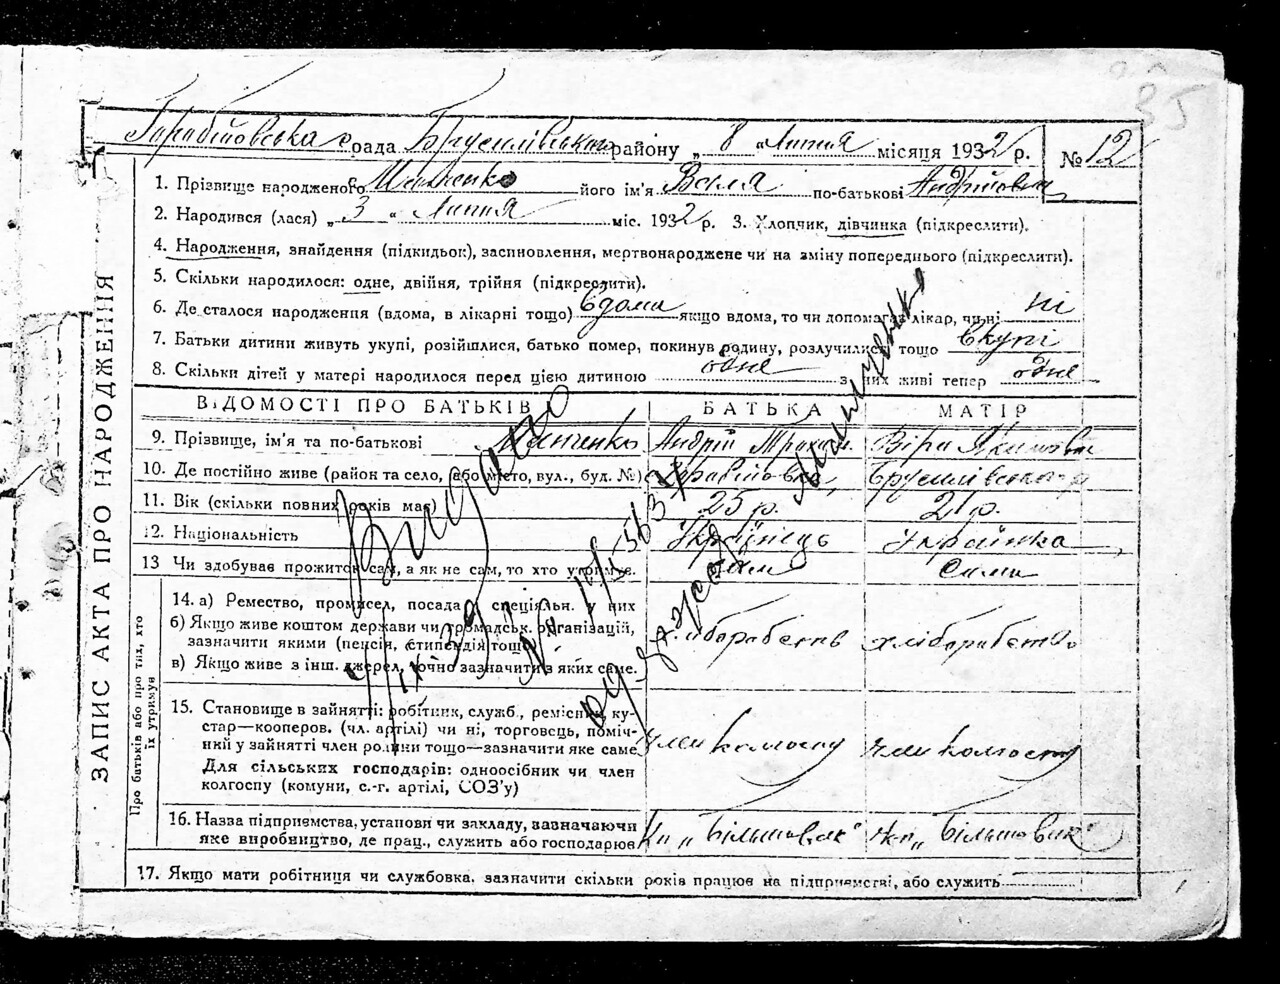 35
рада Брусилівського району „ 8 " Липня місяця 1932 р. № 12
1. Прізвище народженого його ім'я Валя по-батькові Андріївна
2. Народився (лася) „ 3 " Липня міс. 1932 р. 3. Хлопчик, дівчинка (підкреслити).
4. Народження, знайдення (підкидьок), засиновлення, мертвонароджене чи на зміну попереднього (підкреслити).
5. Скільки народилося: одне, двійня, трійня (підкреслити).
6. Де сталося народження (вдома, в лікарні тощо) вдома якщо вдома, то чи допомагав лікар, чи ні ні
7. Батьки дитини живуть укупі, розійшлися, батько помер, покинув родину, розлучились тощо вкупі
8. Скільки дітей у матері народилося перед цією дитиною одне з них живі тепер одне
ВІДОМОСТІ ПРО БАТЬКІВ БАТЬКА МАТІР
9. Прізвище, ім'я та по-батькові Андрій Віра Якимовна
10. Де постійно живе (район та село, або місто, вул., буд. №) Брусилівського р
11. Вік (скільки повних років має) 25 р. 21 р.
12. Національність Українець Українка
13 Чи здобував прожиток сам, а як не сам, то хто утримує. сам сама
14. а) Ремество, промисел, посада й спеціяльн. у них
б) Якщо живе коштом держави чи громадськ. організацій,
зазначити якими (пенсія, стипендія тощо)
в) Якщо живе з інш. джерел, точно зазначити з яких саме.
хліборобств хліборобство
15. Становище в зайнятті: робітник, служб., ремісник, ку-
стар—кооперов. (чл. артілі) чи ні, торговець, поміч-
ний у зайнятті член родини тощо—зазначити яке саме
Для сільських господарів: одноосібник чи член
колгоспу (комуни, с.-г. артілі, СОЗ'у)
член колгоспу член колгоспу
16. Назва підприємства, установи чи закладу, зазначаючи
яке виробництво, де прац., служить або господарює
Кп „Більшовик" Кп „Більшовик"
17. Якщо мати робітниця чи службовка, зазначити скільки років працює на підприємстві, або служить
ЗАПИС АКТА ПРО НАРОДЖЕННЯ
Про батьків або про тих, хто
їх утримує
Видато